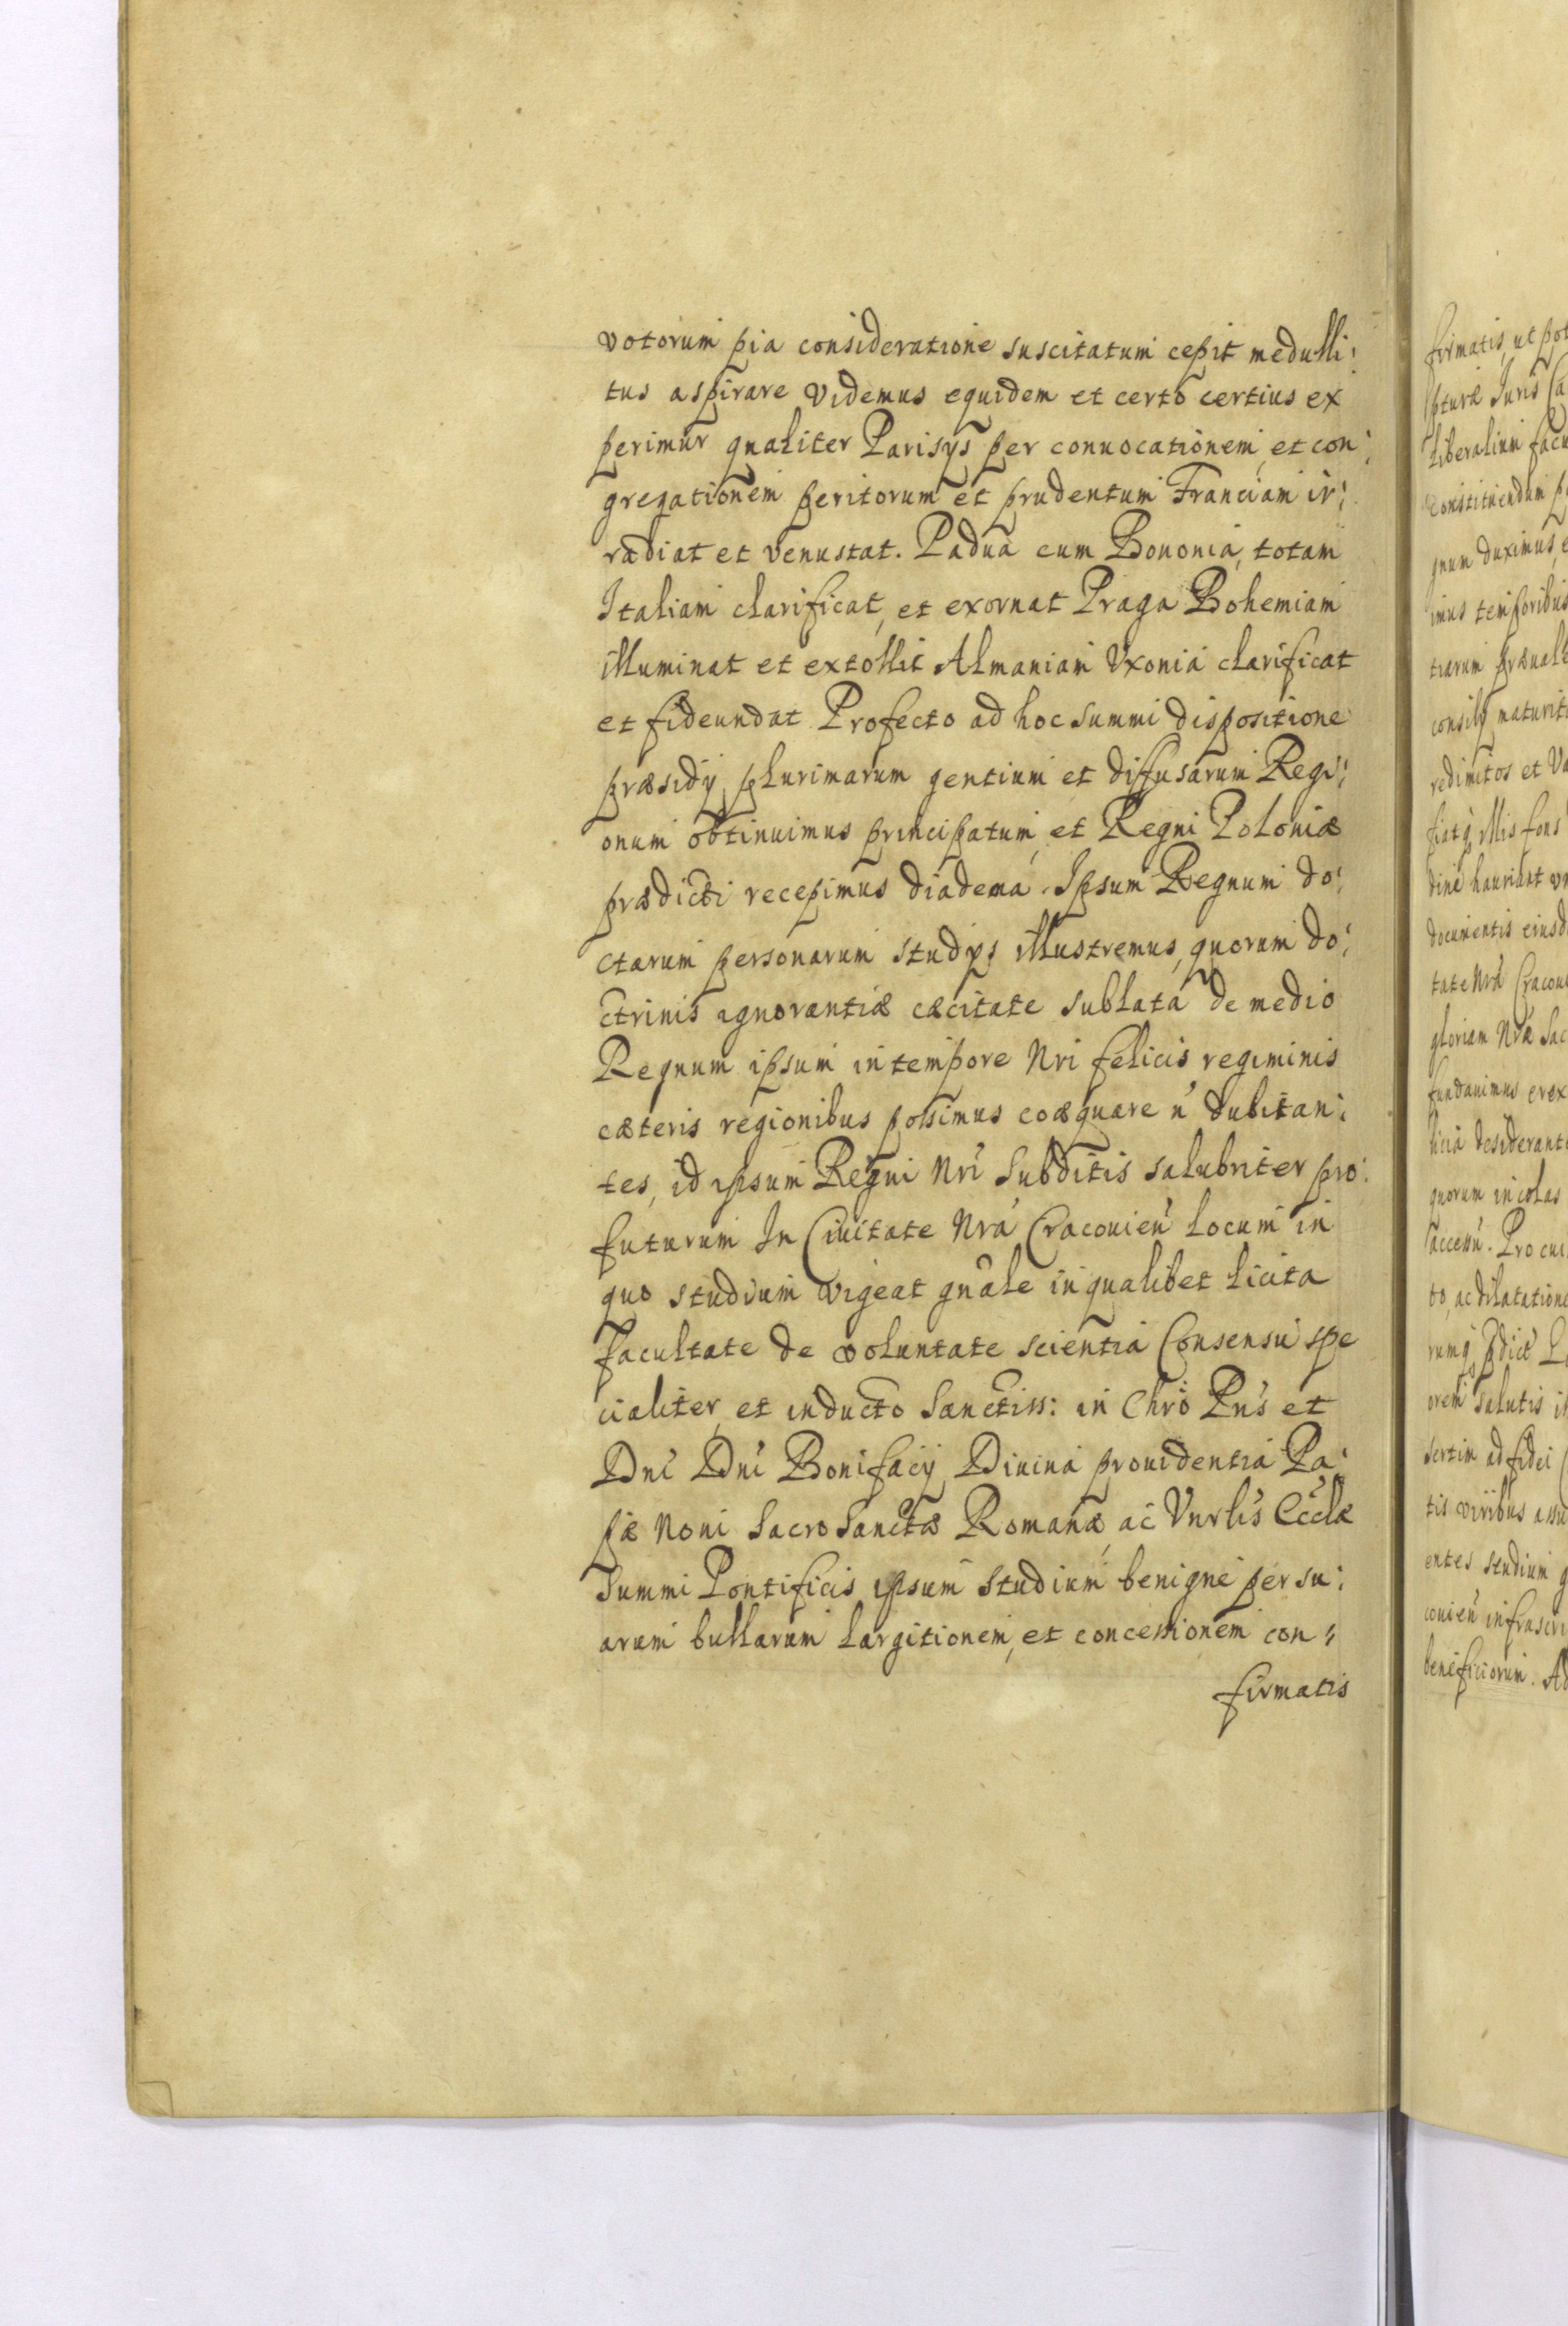 votorum pia consideratione suscitatum cepit medulli:
tus aspirare Videmus equidem et certo certius ex
perimur qualiter Parisys per conuocationem, et con:
gregationem peritorum et prudentum Franciam ir:
radiat et venustat. Padua cum Bononia, totam
Italiam clarificat, et exornat Praga Bohemiam
illuminat et extollit Almaniam Vxonia clarificat
et fideundat Profecto ad hoc summi dispositione
præsidÿ plurimarum gentium et diffusarum Regi:
onum obtinuimus principatum, et Regni Poloniæ
prædicti recepimus diadema. Ipsum Regnum do:
ctarum personarum studys illustremus, quorum do:
ctrinis ignorantiæ cæcitate sublata de medio
Regnum ipsum in tempore Nri felicis regiminis
cæteris regionibus possimus coæquare n' dubitan:
tes, id ipsum Regni Nri Subditis salubriter pro:
futurum In Ciuitate Nrá Cracouien' locum in
quo studium vigeat gn'ale in qualibet licita
facultate de voluntate scientia Consensu spe
cialiter, et inducto Sanctiss: in Chro Pn's et
Dni Dni Bonifacÿ Diuina prouidentia Pa:
pæ Noni Sacro Sanctæ Romanæ, ac Vnrlis Eccl'æ
Summi Pontificis ipsum Studium benigne per su:
arum bullarum largitionem, et concessionem con:
firmatis
firmatis, ut
pturæ Juris
liberalium
constituendum
gnum duximus,
imus temporibus
tiarum
consilÿ
redimitos et
fiatq illis fons
dine hauriant
documentis
tate Nrá
gloriam Nræ
fundauimus
licia
quorum incolas
accessu'. Pro
to, ac
rumq pdict'
orem Salutis
sertim ad fidei
tis viribus
entes Studium
couien'
beneficiorum.